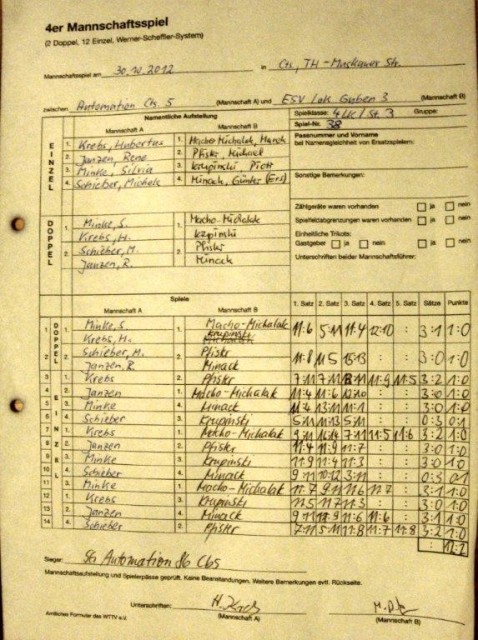 4er Mannschaftsspiel
(2 Doppel, 12 Einzel, Werner-Scheffler-System)
Mannschaftsspiel am 30.10.2012 in Cbs, TH-Muskauer Str.
zwischen Automation Cbs. 5 (Mannschaft A) und ESV Lok Guben 3 (Mannschaft B)
Namentliche Aufstellung Spielklasse: 4.KK/St.3 Gruppe:
Mannschaft A Mannschaft B Spiel-Nr. 38
EINZEL
1. Krebs, Hubertus 1.
2. Janzen, Rene 2. Pfister, Michael
3. Minke, Silvia 3. Krupinski, Piotr
4. Schieber, Michele 4. Minack, Günter (Ers)
Passnummer und Vorname
bei Namensgleichheit von Ersatzspielern:
Sonstige Bemerkungen:
DOPPEL
1. Minke, S. 1. Macho-Michalak
Krebs, H. Krupinski
2. Schieber, M. 2. Pfister
Janzen, R. Minack
Zählgeräte waren vorhanden ja nein
Spielfeldabgrenzungen waren vorhanden ja nein
Einheitliche Trikots:
Gastgeber ja nein
Unterschriften beider Mannschaftsführer:
Spiele
Mannschaft A Mannschaft B 1. Satz 2. Satz 3. Satz 4. Satz 5. Satz Sätze Punkte
DOPPEL
1 1. Minke, S. 1. Macho-Michalak 11:6 5:11 11:4 12:10 : 3:1 1:0
Krebs, H. Krupinski
2 2. Schieber, M. 2. Pfister 11:8 11:5 15:13 : : 3:0 1:0
Janzen, R. Minack
EINZEL
3 1. Krebs 2. Pfister 3:2 1:0
4 2. Janzen 1. Macho-Michalak 11:4 11:6 12:10 : : 3:0 1:0
5 3. Minke 4. Minack : : 3:0 1:0
6 4. Schieber 3. Krupinski 5:11 : : 0:3 0:1
7 1. Krebs 1. Macho-Michalak 11:5 11:6 3:2 1:0
8 2. Janzen 2. Pfister 11:4 11:9 11:7 : : 3:0 1:0
9 3. Minke 3. Krupinski 11:9 11:4 11:3 : : 3:0 1:0
10 4. Schieber 4. Minack 9:11 10:12 3:11 : : 0:3 0:1
11 3. Minke 1. Macho-Michalak 11:7 9:11 11:6 11:7 : 3:1 1:0
12 1. Krebs 3. Krupinski 11:5 11:7 : : 3:0 1:0
13 2. Janzen 4. Minack 11:6 11:6 : 3:1 1:0
14 4. Schieber 2. Pfister 7:11 11:8 11:7 11:8 3:2 1:0
: 12:2
Sieger: SG Automation 86 Cbs
Mannschaftsaufstellung und Spielerpässe geprüft. Keine Beanstandungen. Weitere Bemerkungen evtl. Rückseite.
Unterschriften:
Amtliches Formular des WTTV e.V. (Mannschaft A) (Mannschaft B)